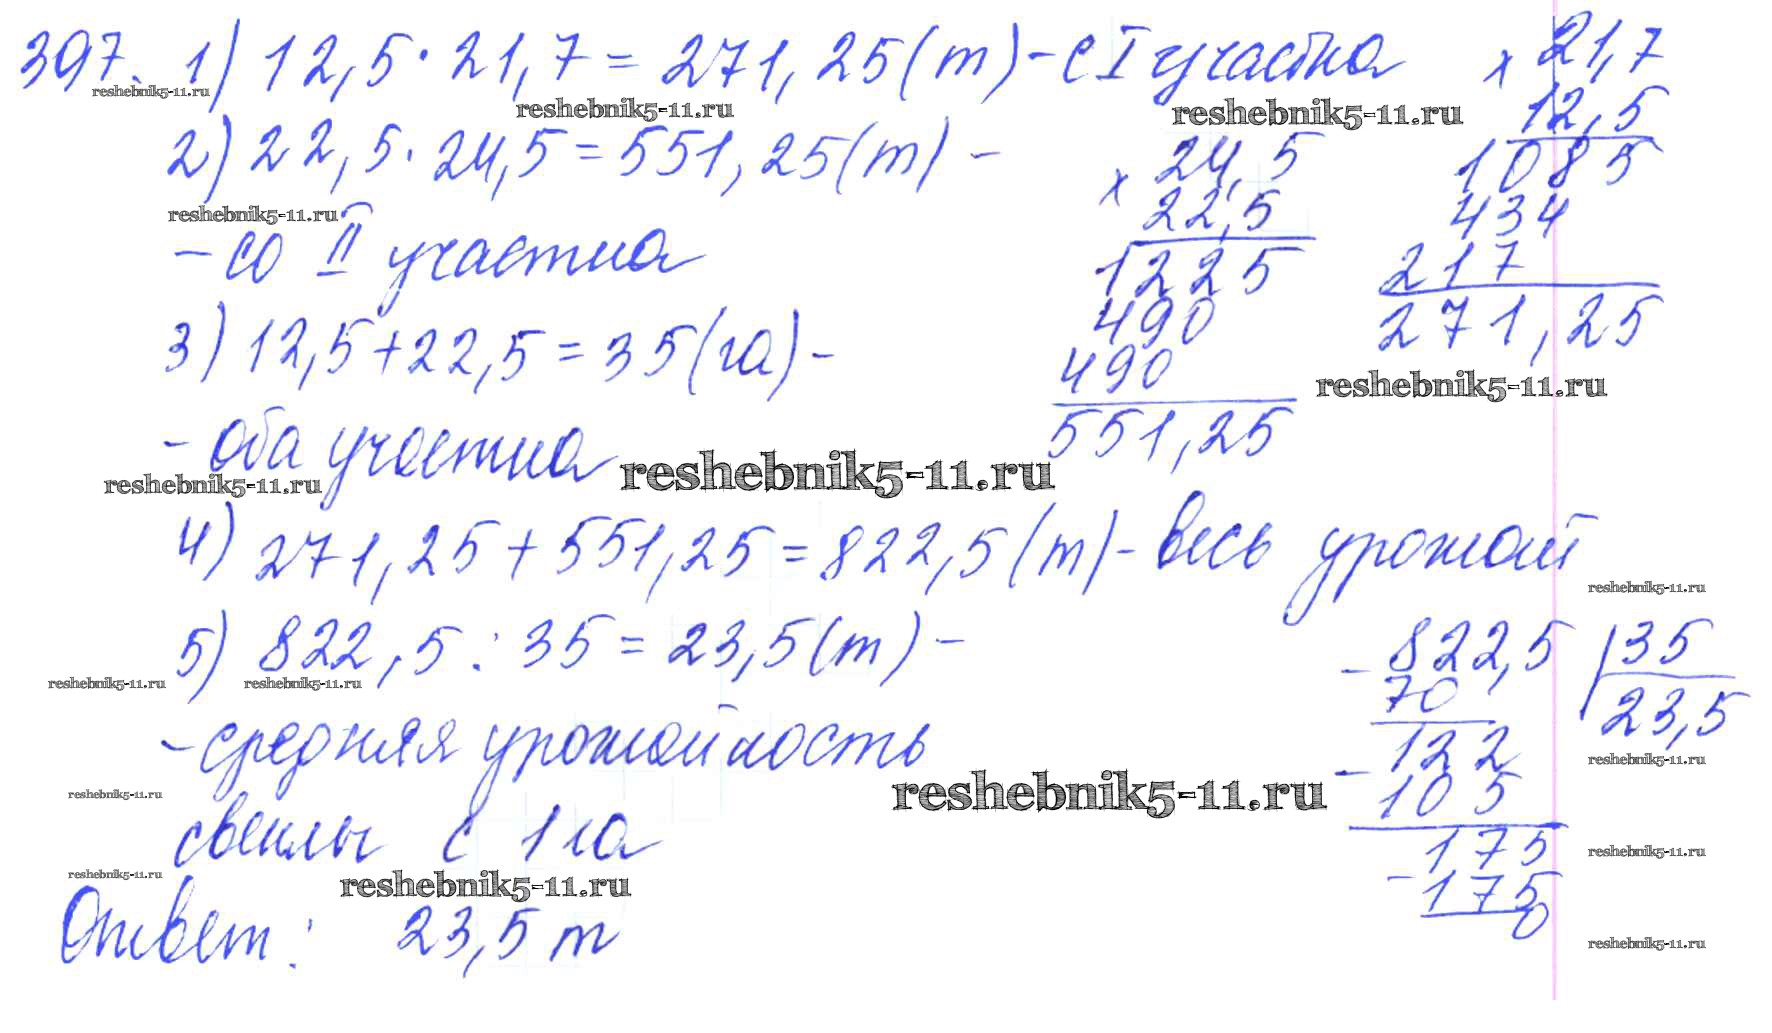 397. 1) 12,5 · 21,7 = 271,25 (т) - с I участка
2) 22,5 · 24,5 = 551,25 (т) -
- со II участка
3) 12,5 + 22,5 = 35 (га) -
- оба участка
4) 271,25 + 551,25 = 822,5 (т) - весь урожай
5) 822,5 : 35 = 23,5 (т) -
- средняя урожайность
свеклы с 1 га
Ответ: 23,5 т
× 21,7
12,5
1085
434
217
271,25
× 24,5
22,5
1225
490
490
551,25
- 822,5 | 35
70 23,5
- 122
105
- 175
175
0
reshebnik5-11.ru
reshebnik5-11.ru
reshebnik5-11.ru
reshebnik5-11.ru
reshebnik5-11.ru
reshebnik5-11.ru
reshebnik5-11.ru
reshebnik5-11.ru
reshebnik5-11.ru
reshebnik5-11.ru
reshebnik5-11.ru
reshebnik5-11.ru
reshebnik5-11.ru
reshebnik5-11.ru
reshebnik5-11.ru
reshebnik5-11.ru
reshebnik5-11.ru